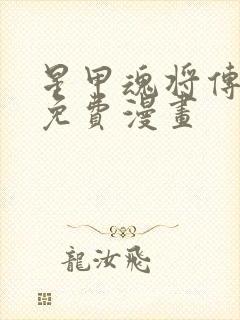 星甲魂将傳
免費漫畫
龍汝飛